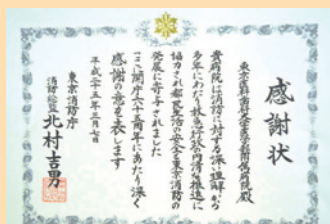 感謝状
東京医科歯科大学医学部附属病院殿
貴病院は消防に対する深い理解から
多年にわたり救急行政の円滑な推進に
協力され都民生活の安全と東京消防の
発展に寄与されました
ここに開庁六十五周年にあたり深く
感謝の意を表します
平成二十五年三月七日
東京消防庁
消防総監 北村吉男